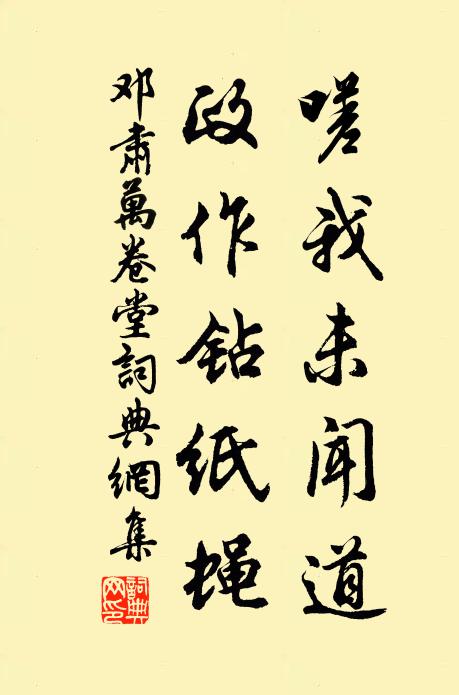 嗟我未闻道
政作钻纸蝇
邓肃萬卷堂詞典網集
詞典網印